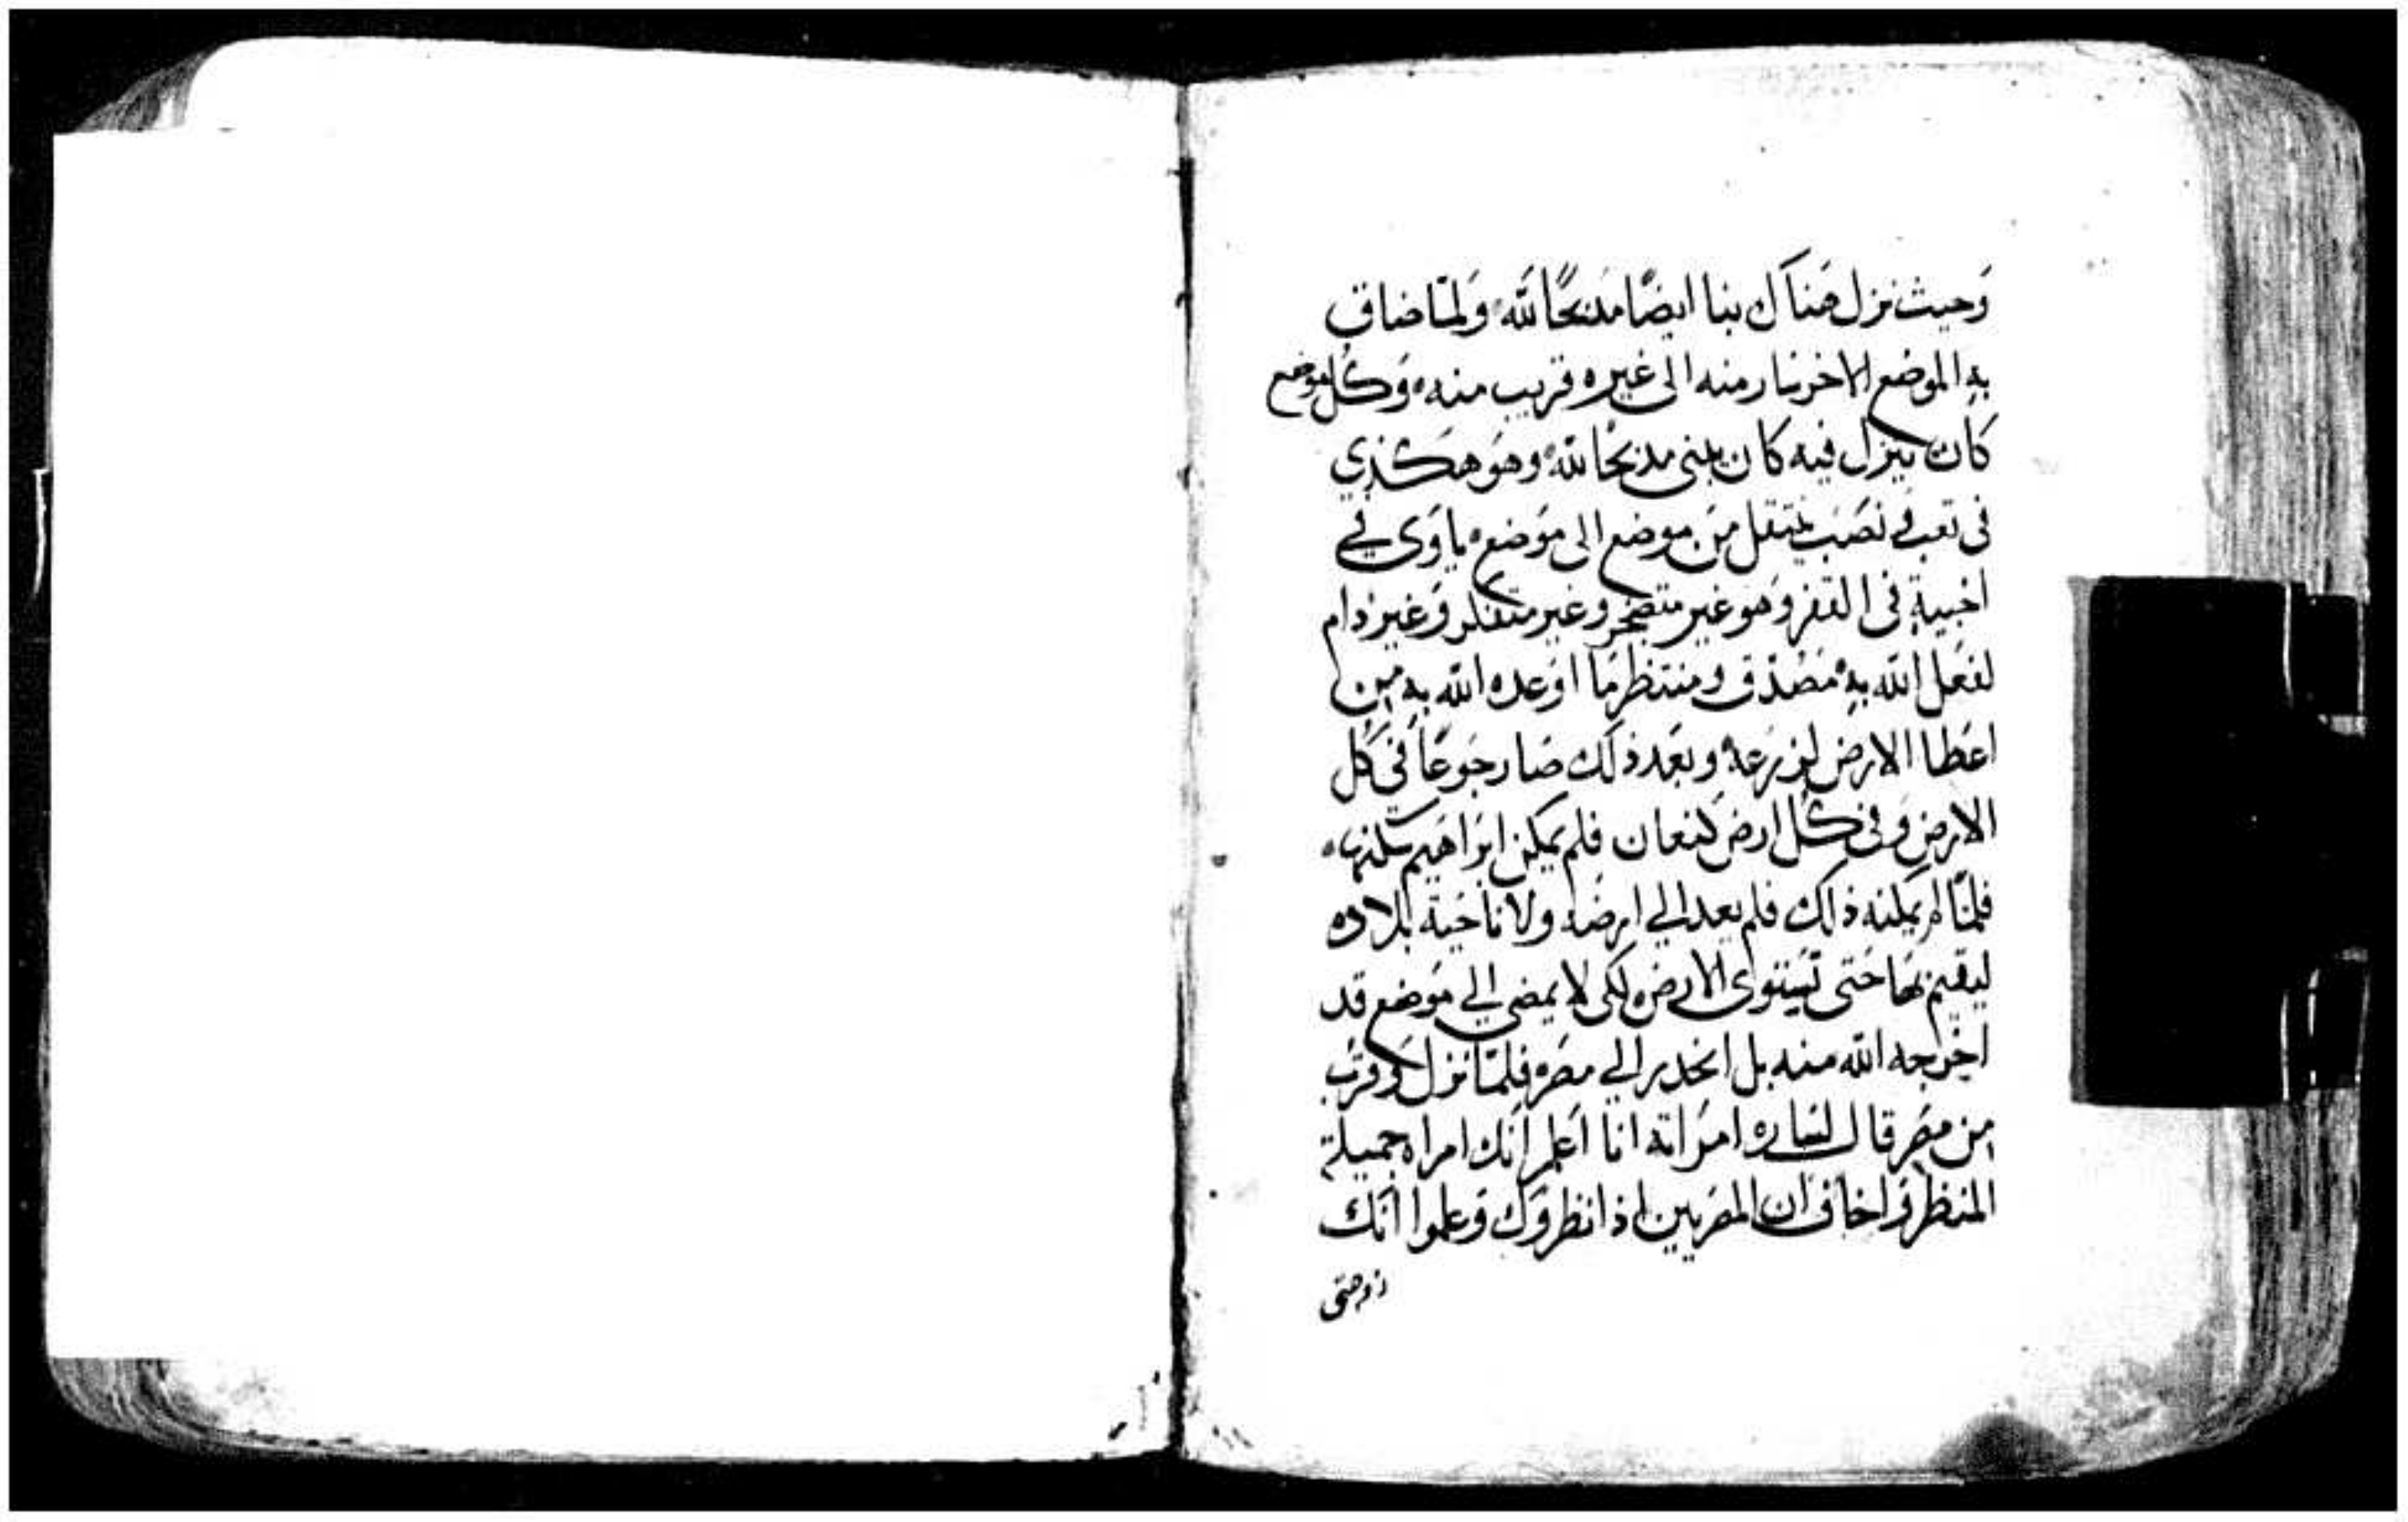 وَحيث نزل هَناك بنا ايضًا مذبحًا لله ولمّا ضاق
بهِ الموضع الاخر سار منه الى غيره قريب منه وَكُل موضع
كان ينزل فيه كان يبنى مذبحًا لله وهو هكذي
فى تعب فى نصَب ينتقل من موضع الى مَوضع ياوَى في
اخبيةٍ فى القفر وَهو غير متضجر وغير متفكر وَغير ذام
لفعَل الله بهِ مصَدّق ومنتظر مَا اوَعده الله بهِ مِن
اعَطا الارض لزرعهِ وبعَد ذلك صَار جَوعًا فى كل
الارض وَفى كُل ارض كنعان فلم يمكن ابرَاهيم سكنها
فلمّا لم يمكنه ذلك فلم يعد الي ارضه ولا ناحَية بلاده
ليقيم بهَا حَتى تَستوى الارض لكى لا يمضى الي موَضع قد
اخرجه الله منه بل انحدر الي مصَر فلمّا نزل وقرَب
مِن مصَر قال لسَاره امرَاته انا اعَلم انك امراه جميلة
المنظر وَاخاف ان المصَريين اذا نظروك وَعلموا انك
زوجتى